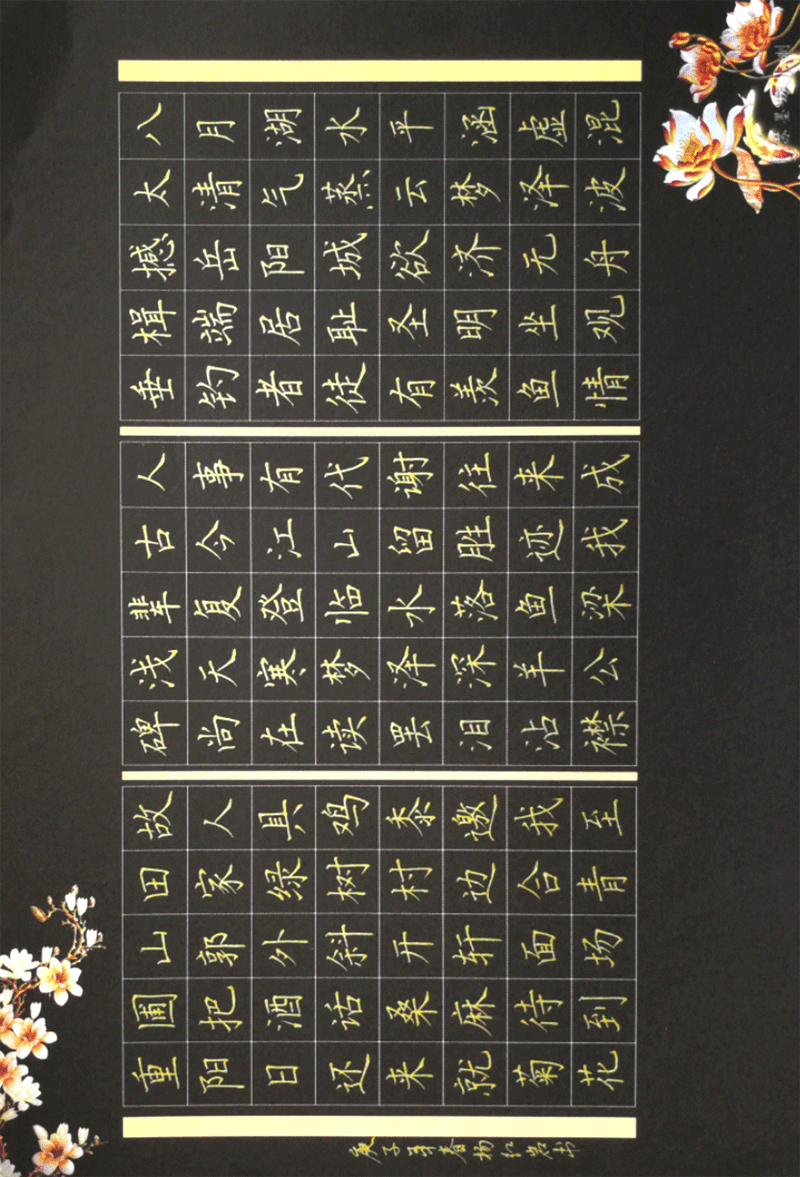 八月湖水平涵虚混
太清气蒸云梦泽波
撼岳阳城欲济无舟
楫端居耻圣明坐观
垂钓者徒有羡鱼情
人事有代谢往来成
古今江山留胜迹我
辈复登临水落鱼梁
浅天寒梦泽深羊公
碑尚在读罢泪沾襟
故人具鸡泰邀我至
田家绿树村边合青
山郭外斜开轩面场
圃把酒话桑麻待到
重阳日还来就菊花
庚子年春杨红书